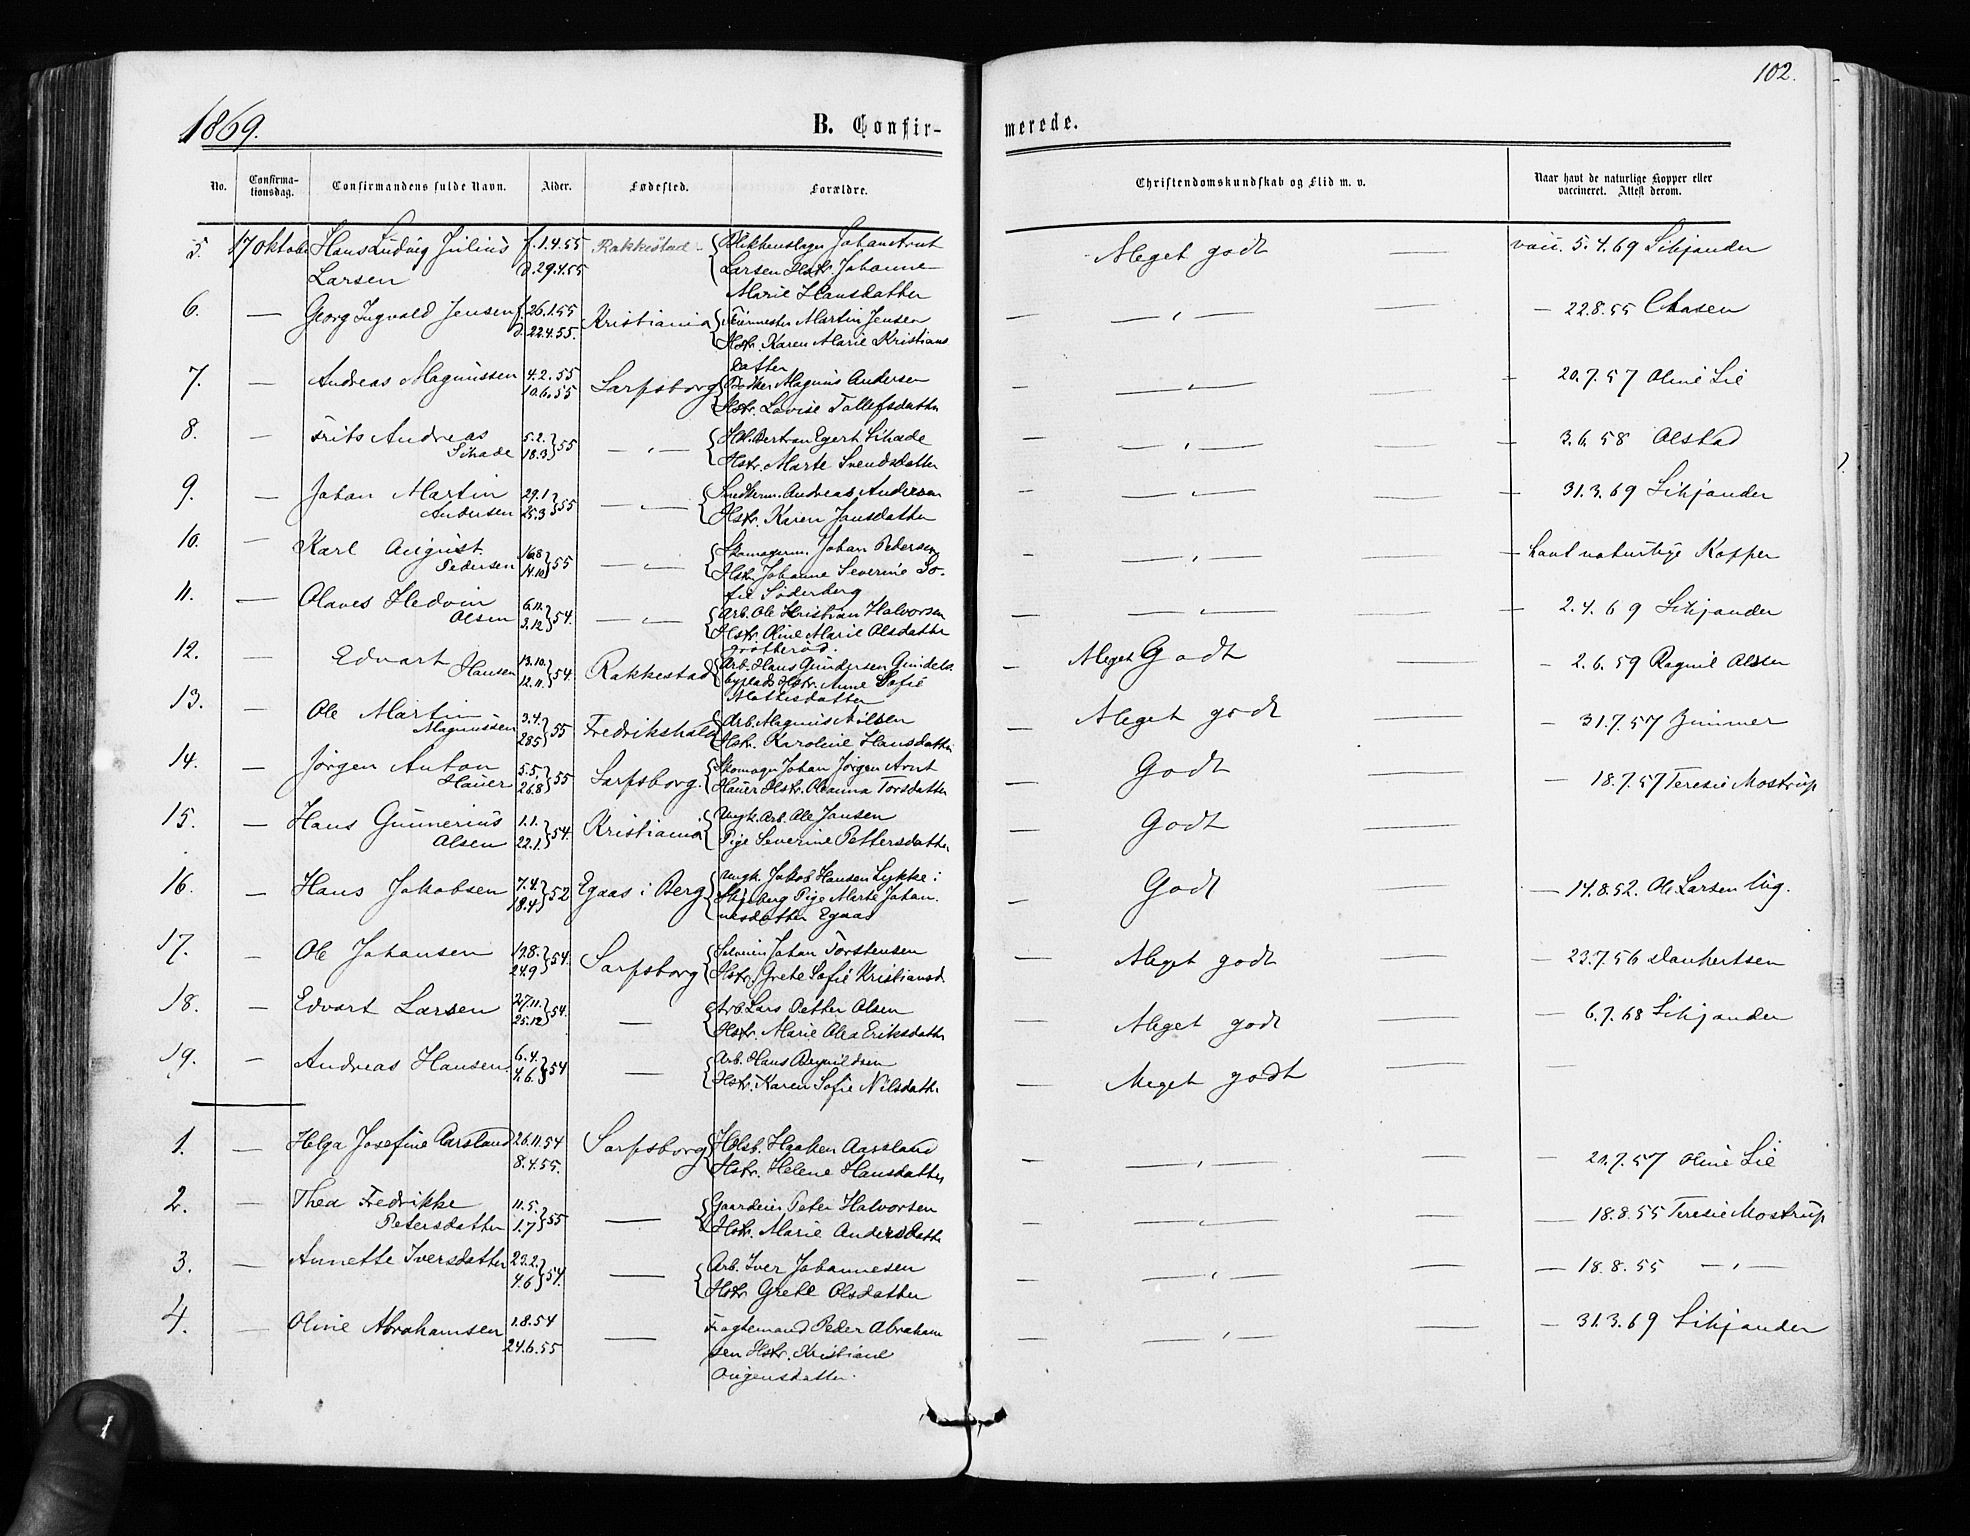 102.
1869.
B. Confir-
merede.
No. Confirma-tionsdag. Confirmandens fulde Navn. Alder. Fødested. Forældre. Christendomskundskab og Flid m. v. Naar havt de naturlige Kopper eller vaccineret. Attest derom.
5. 17 Oktobr Hans Ludvig Julius f. 1.4.55 Rakkestad Johan Arnt Meget godt — vacc. 5.4.69 Silzander
Larsen d. 29.4.55 Larsen Hstr. Johanne
Marie Hansdatter
6. — Georg Ingvald Jensen f. 26.1.55 Kristiania Martin Jensen — „ — — — 22.8.55 Clasen
d. 22.4.55. Hstr. Karen Marie Kristians
datter
7. — Andreas Magnussen 4.2.55 Sarpsborg Magnus Andersen — „ — — — 20.7.57 Oline Lie
10.6.55 Hstr. Lovise Tollefsdatter
8. — Frits Andreas 5.2. } 55 — „ — Bertran Egert Schade — „ — — — 3.6.58 Olstad
Schade 18.3 Hstr. Marte Svendsdatter
9. — Johan Martin 29.1 } 55 — „ — Snedkerm. Andreas Andersen — „ — — — 31.3.69 Silzander
Andersen 25.3 Hstr. Karen Jansdatter
10. — Karl August 16.8 } 55 — „ — Skomagerm. Johan Pedersen — „ — — — havt naturlige Kopper
Pedersen 14.10 Hstr. Johanne Severine So-
fie Söderberg
11. — Olaves Hedvin 6.11. } 54. — „ — Arb. Ole Kristian Halvorsen — „ — — — 2.4.69 Silzander
Olsen 3.12 Hstr. Oline Marie Olsdatter
12. — Edvart 13.10. } 54. Rakkestad Arb. Hans Gundersen — Meget Godt — — 2.6.59 Ragnil Olsen
Hansen 12.11. Hstr. Anne Sofie
Mathisdatter
13. — Ole Martin 3.4. } 55 Fredrikshald Arb. Magnus Nilsen — Meget godt — — 31.7.57 Zimmer
Magnussen 28.5 Hstr. Karoline Hansdatter
14. — Jörgen Anton 5.5. } 55 Sarpsborg. Skomagr Johan Jörgen Arnt — Godt — — 18.7.57 Teresie Mostrup
Hauer 26.8 Hauer Hstr. Oleanna Torsdatter
15. — Hans Gunnerius 1.1. } 54. Kristiania Ungk. Arb. Ole Jansen — Godt —
Olsen 22.1 Pige Severine Pettersdatter
16. — Hans Jakobsen 7.4. } 52 Egaas i Berg Ungk. Jakob Hansen Lykke i — Godt — 14.8.52. Ole Larsen
18.4 Pige Marte Johan-
nesdatter Egaas
17. — Ole Johansen 19.8. } 54. Sarpsborg Johan Torstensen — Meget godt — — 23.7.56 Dankertsen
24.9 Hstr. Grete Sofie Kristiansd.
18. — Edvart Larsen 27.11. } 54. — Arb Lars Petter Olsen — Meget godt — — 6.7.68 Silzander
25.12 Hstr. Marie Olea Eriksdatter
19. — Andreas Hansen. 6.4. } 54 — Arb. Hans — Meget godt — —
4.6. Hstr. Karen Sofie Nilsdatter
1. — Helga Josefine Aarsland 26.11.54 Sarpsborg Haaken Aarsland — „ — — — 20.7.57 Oline Lie
8.4.55. Hstr. Helene Hansdatter
2. — Thea Fredrikke 11.5. } 55 — Gaardeier Peter Halvorsen — „ — — — 18.8.55 Teresie Mostrup
Petersdatter 1.7 Hstr. Marie Andersdatter
3. — Annette Iversdatter 23.2. } 54. — Arb. Iver Johannesen — „ — — — 18.8.55 — „ —
4.6 Hstr Grete Olsdatter
4. — Oline Abrahamsen 1.8.54 — Fragtemand Peder Abraham — „ — — — 31.3.69 Silzander
24.6.55 sen Hstr. Kristiane